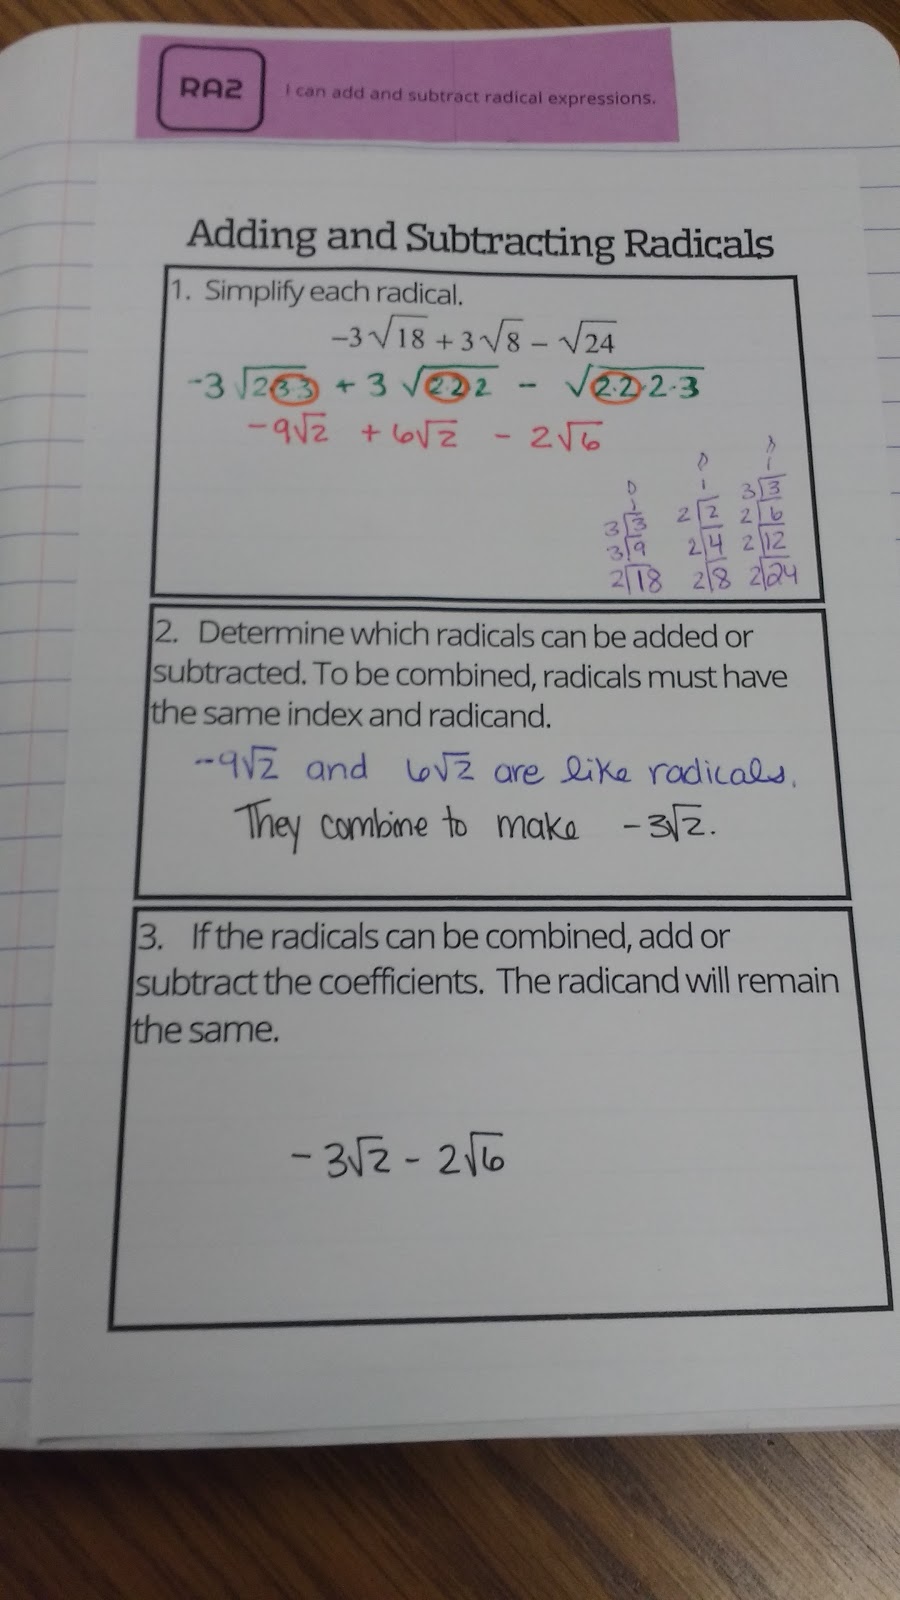 RA2
I can add and subtract radical expressions.
Adding and Subtracting Radicals
1. Simplify each radical.
-3√18 + 3√8 - √24
-3√2·3·3 + 3√2·2·2 - √2·2·2·3
-9√2 + 6√2 - 2√6
1 1 1
3|3 2|2 3|3
3|9 2|4 2|6
2|18 2|8 2|12
2|24
2. Determine which radicals can be added or
subtracted. To be combined, radicals must have
the same index and radicand.
-9√2 and 6√2 are like radicals.
They combine to make -3√2.
3. If the radicals can be combined, add or
subtract the coefficients. The radicand will remain
the same.
-3√2 - 2√6